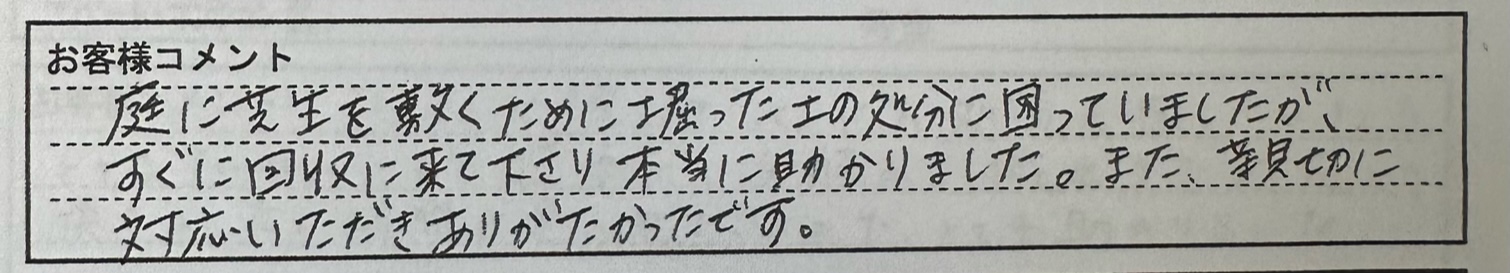 お客様コメント
庭に芝生を敷くために掘った土の処分に困っていましたが、
すぐに回収に来て下さり本当に助かりました。また、親切に
対応いただきありがたかったです。